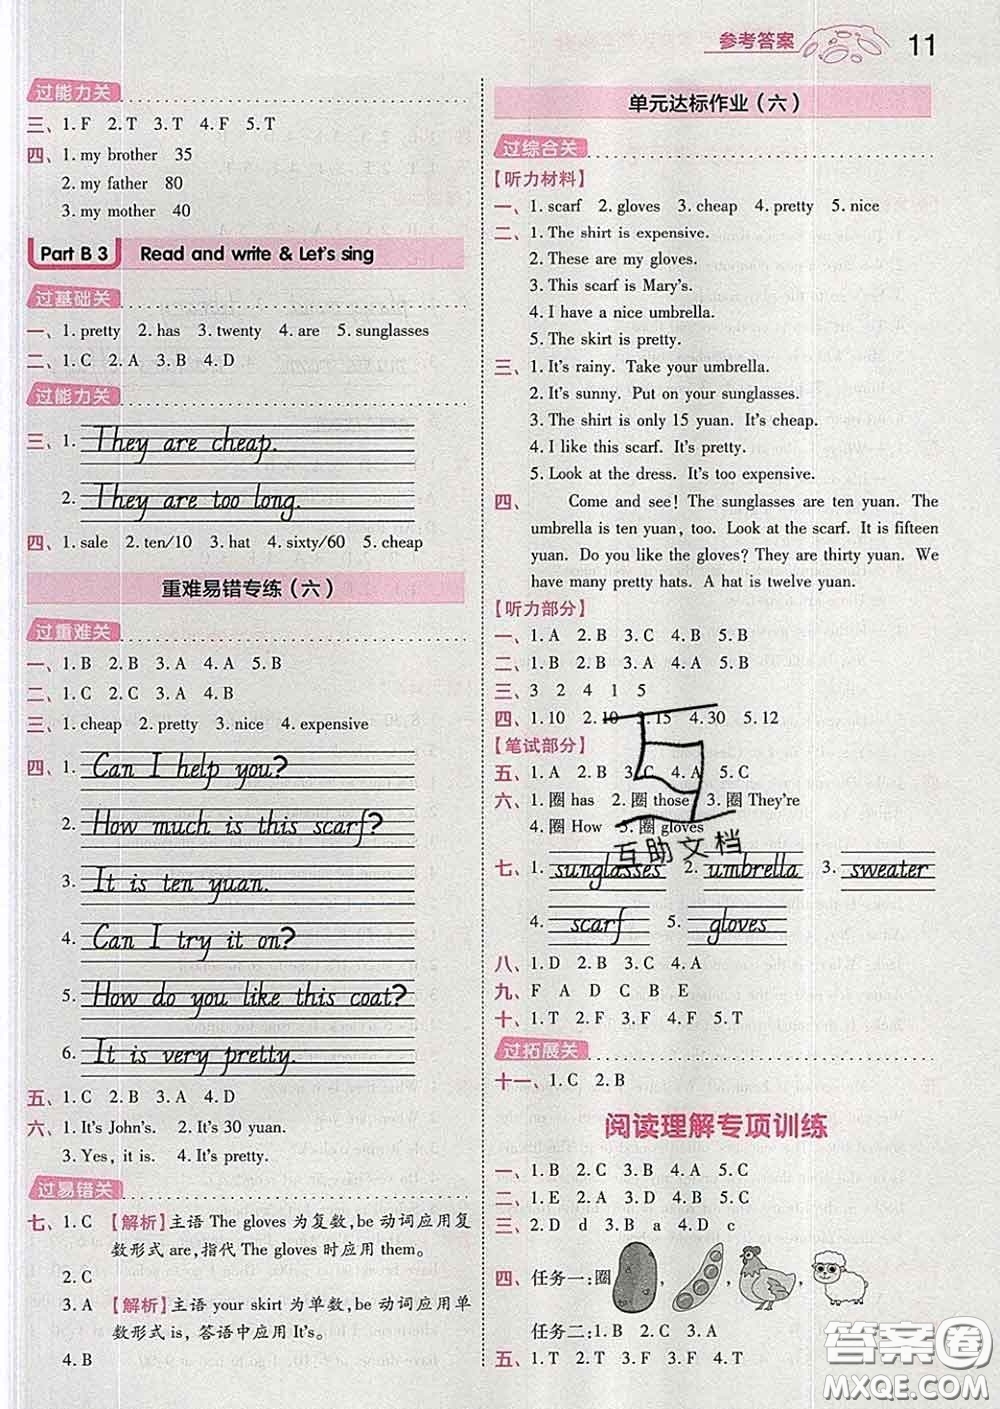 参考答案 11
过能力关
三、1. F 2. T 3. T 4. F 5. T
四、1. my brother 35
2. my father 80
3. my mother 40
Part B 3 Read and write & Let's sing
过基础关
一、1. pretty 2. has 3. twenty 4. are 5. sunglasses
二、1. C 2. A 3. B 4. D
过能力关
三、1. They are cheap.
2. They are too long.
四、1. sale 2. ten/10 3. hat 4. sixty/60 5. cheap
重难易错专练(六)
过重难关
一、1. B 2. B 3. A 4. A 5. B
二、1. C 2. C 3. A 4. B
三、1. cheap 2. pretty 3. nice 4. expensive
四、1. Can I help you?
2. How much is this scarf?
3. It is ten yuan.
4. Can I try it on?
5. How do you like this coat?
6. It is very pretty.
五、1. C 2. B 3. A 4. D
六、1. It's John's. 2. It's 30 yuan.
3. Yes, it is. 4. It's pretty.
过易错关
七、1. C 【解析】主语 The gloves 为复数,be 动词应用复
数形式 are,指代 The gloves 时应用 them。
2. C
3. A 【解析】主语 your skirt 为单数,be 动词应用单
数形式 is, 答语中应用 It's。
4. B
单元达标作业(六)
过综合关
【听力材料】
一、1. scarf 2. gloves 3. cheap 4. pretty 5. nice
二、1. The shirt is expensive.
2. These are my gloves.
3. This scarf is Mary's.
4. I have a nice umbrella.
5. The skirt is pretty.
三、1. It's rainy. Take your umbrella.
2. It's sunny. Put on your sunglasses.
3. The shirt is only 15 yuan. It's cheap.
4. I like this scarf. It's pretty.
5. Look at the dress. It's too expensive.
四、 Come and see! The sunglasses are ten yuan. The
umbrella is ten yuan, too. Look at the scarf. It is fifteen
yuan. Do you like the gloves? They are thirty yuan. We
have many pretty hats. A hat is twelve yuan.
【听力部分】
一、1. A 2. B 3. C 4. B 5. B
二、1. B 2. B 3. A 4. A 5. B
三、3 2 4 1 5
四、1. 10 2. 10 3. 15 4. 30 5. 12
【笔试部分】
五、1. A 2. B 3. C 4. A 5. C
六、1. 圈 has 2. 圈 those 3. 圈 They're
4. 圈 How 5. 圈 gloves
互助文档
七、1. sunglasses 2. umbrella 3. sweater
4. scarf 5. gloves
八、1. D 2. B 3. C 4. A
九、F A D C B E
十、1. T 2. F 3. F 4. F 5. T
过拓展关
十一、1. C 2. B
阅读理解专项训练
一、1. B 2. C 3. B 4. A 5. C
二、1. E 2. A 3. D 4. C 5. B
三、2. D d 3. B a 4. D c
四、任务一:圈
任务二:1. B 2. C 3. A
五、1. T 2. T 3. F 4. T 5. F
答案圈
MXQE.COM